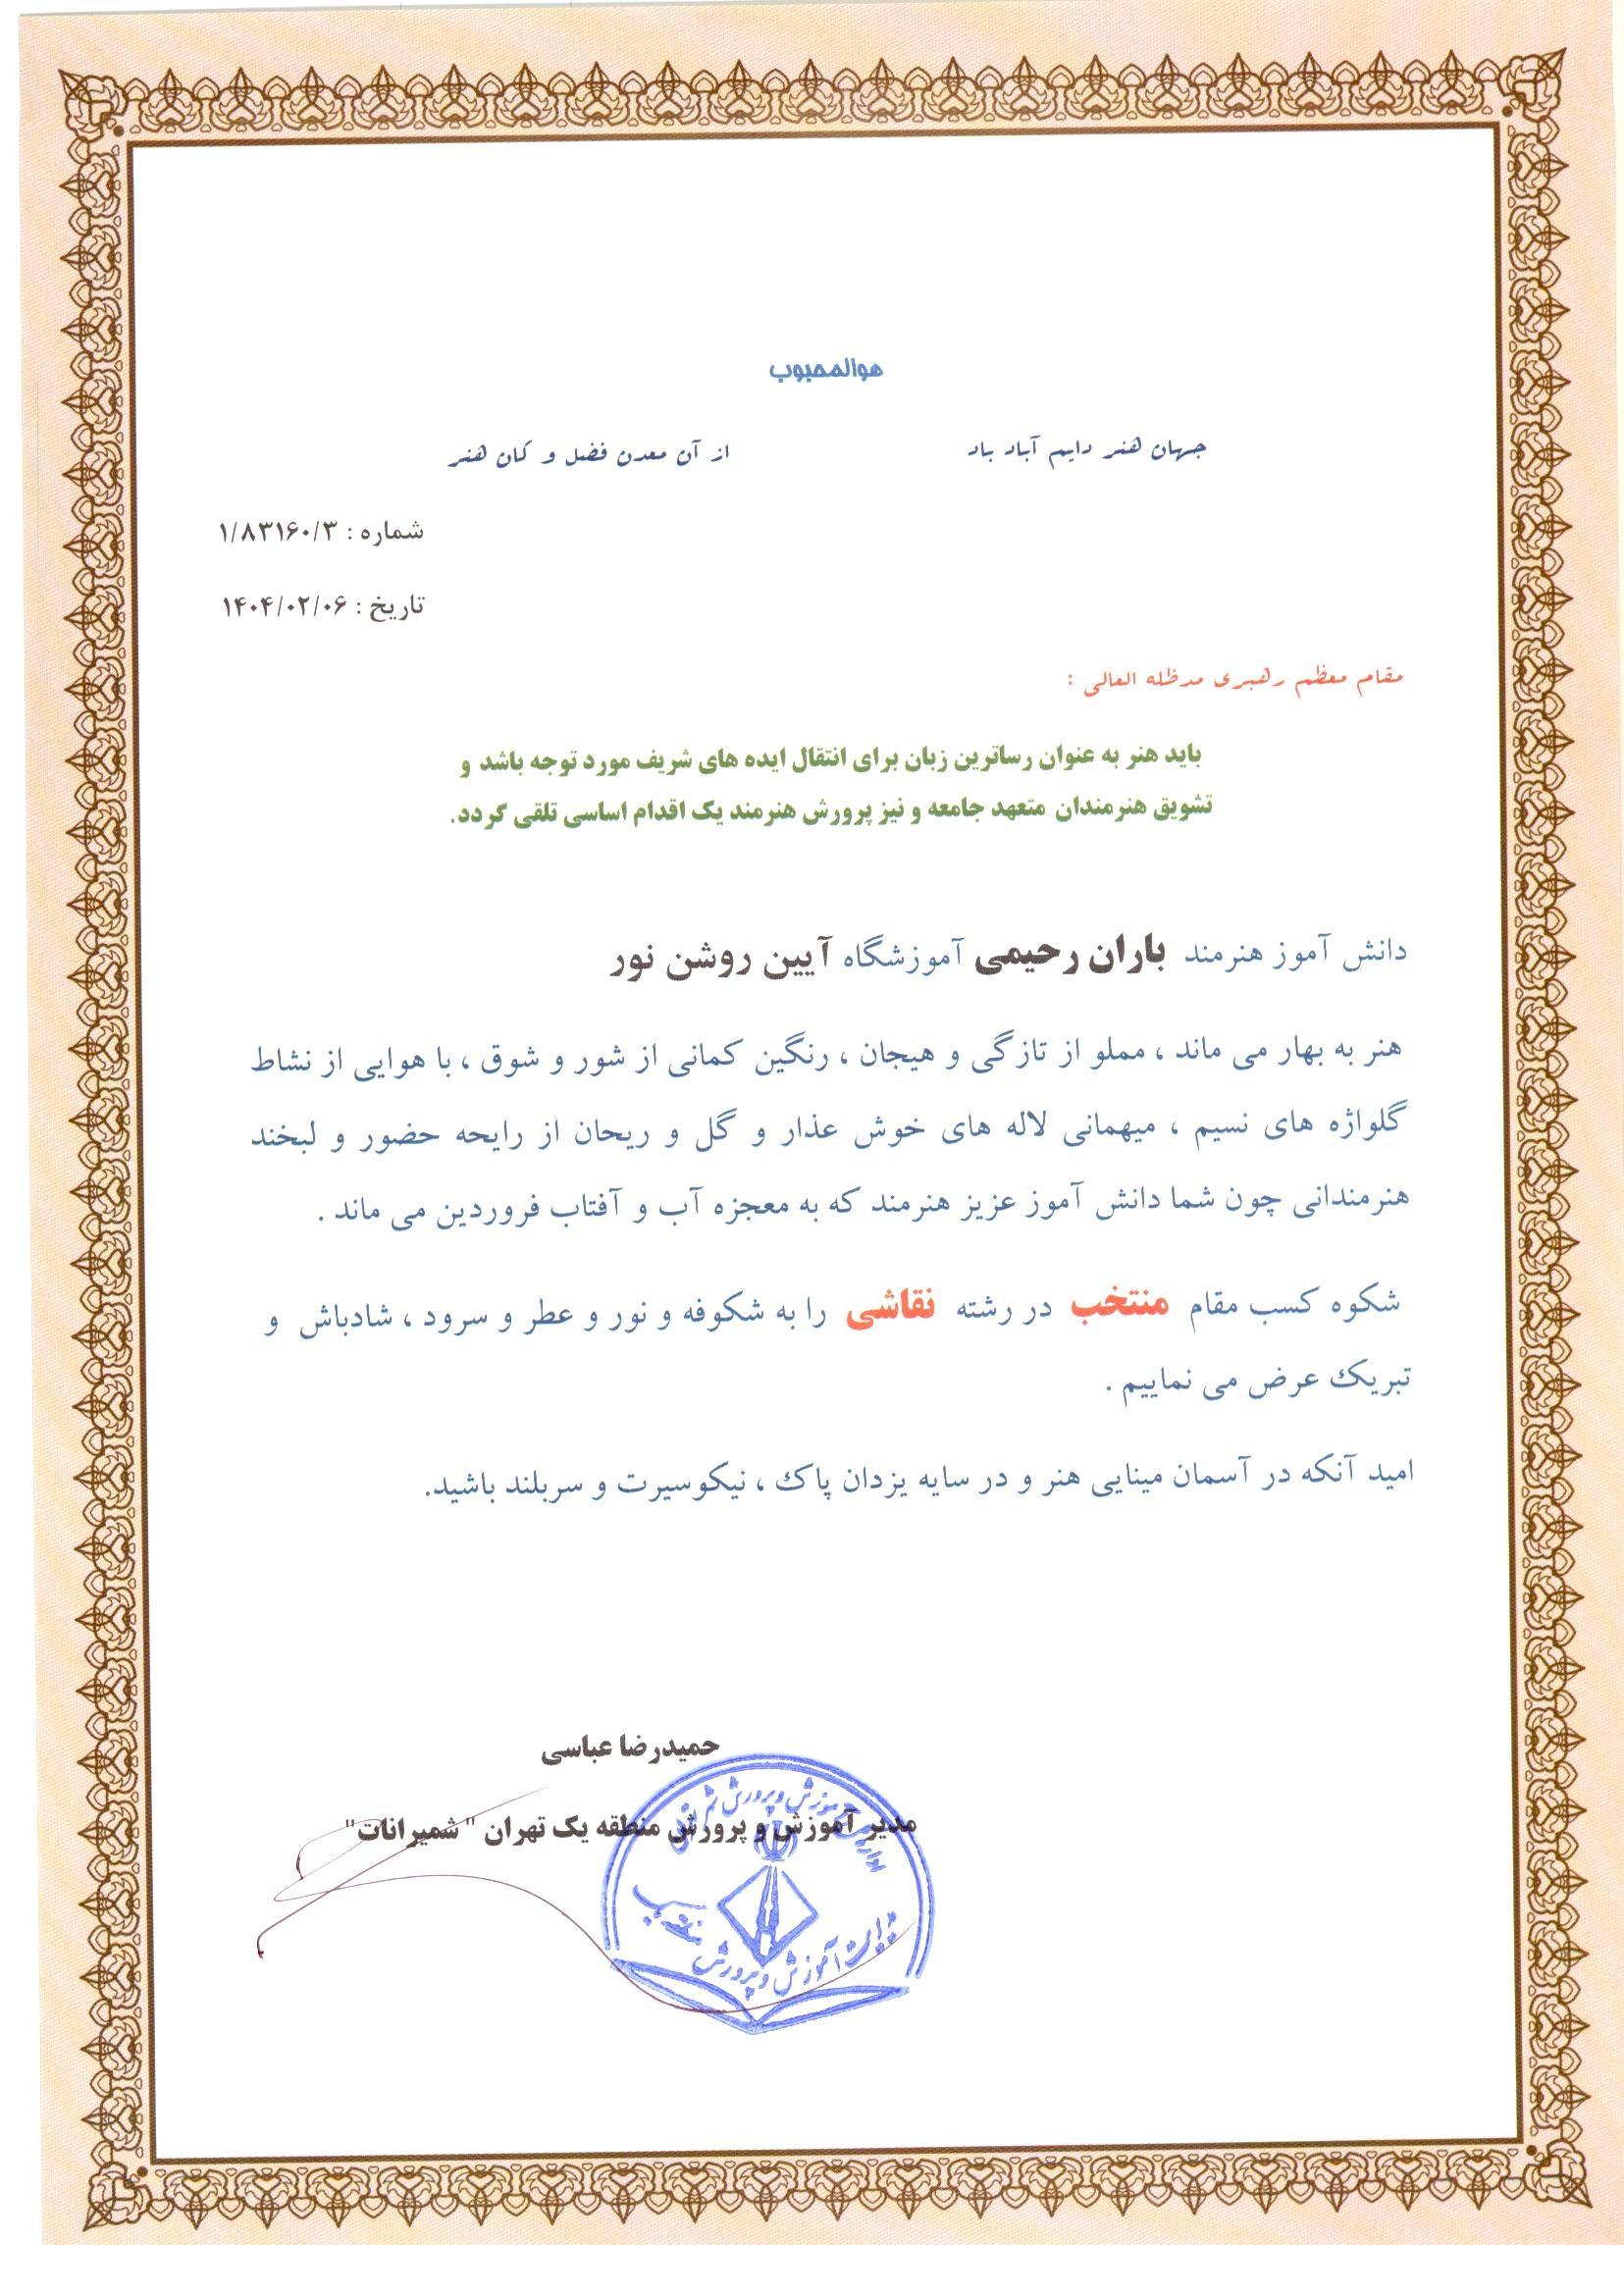 هوالمحبوب
جهان هنر دایم آباد باد از آن معدن فضل و کان هنر
شماره : ۱/۸۳۱۶۰/۳
تاریخ : ۱۴۰۴/۰۲/۰۶
مقام معظم رهبری مدظله العالی :
باید هنر به عنوان رساترین زبان برای انتقال ایده های شریف مورد توجه باشد و
تشویق هنرمندان متعهد جامعه و نیز پرورش هنرمند یک اقدام اساسی تلقی گردد.
دانش آموز هنرمند باران رحیمی آموزشگاه آیین روشن نور
هنر به بهار می ماند ، مملو از تازگی و هیجان ، رنگین کمانی از شور و شوق ، با هوایی از نشاط
گلواژه های نسیم ، میهمانی لاله های خوش عذار و گل و ریحان از رایحه حضور و لبخند
هنرمندانی چون شما دانش آموز عزیز هنرمند که به معجزه آب و آفتاب فروردین می ماند .
شکوه کسب مقام منتخب در رشته نقاشی را به شکوفه و نور و عطر و سرود ، شادباش و
تبریک عرض می نماییم .
امید آنکه در آسمان مینایی هنر و در سایه یزدان پاک ، نیکوسیرت و سربلند باشید.
حمیدرضا عباسی
مدیر آموزش و پرورش منطقه یک تهران " شمیرانات"
وزارت آموزش و پرورش